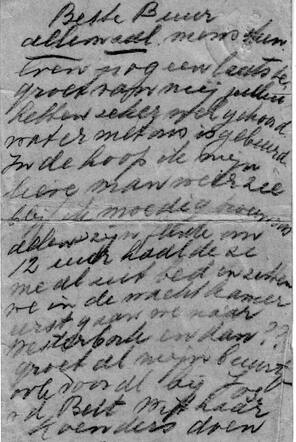 Beste Buur
allemaal, mensen
even nog een laatste
groet van mij jullie
hebben zeker wel gehoord
wat er met ons is gebeurd
In de hoop ik mijn
lieve man weer zie
ik moedig
allen zijn
12 uur haalde ze
me al uit bed en zitten
we in de wachtkamer
eerst gaan we naar
Westerbork en dan ??
groet al mijn buurt
ook vooral bij
v d Belt haar
doen